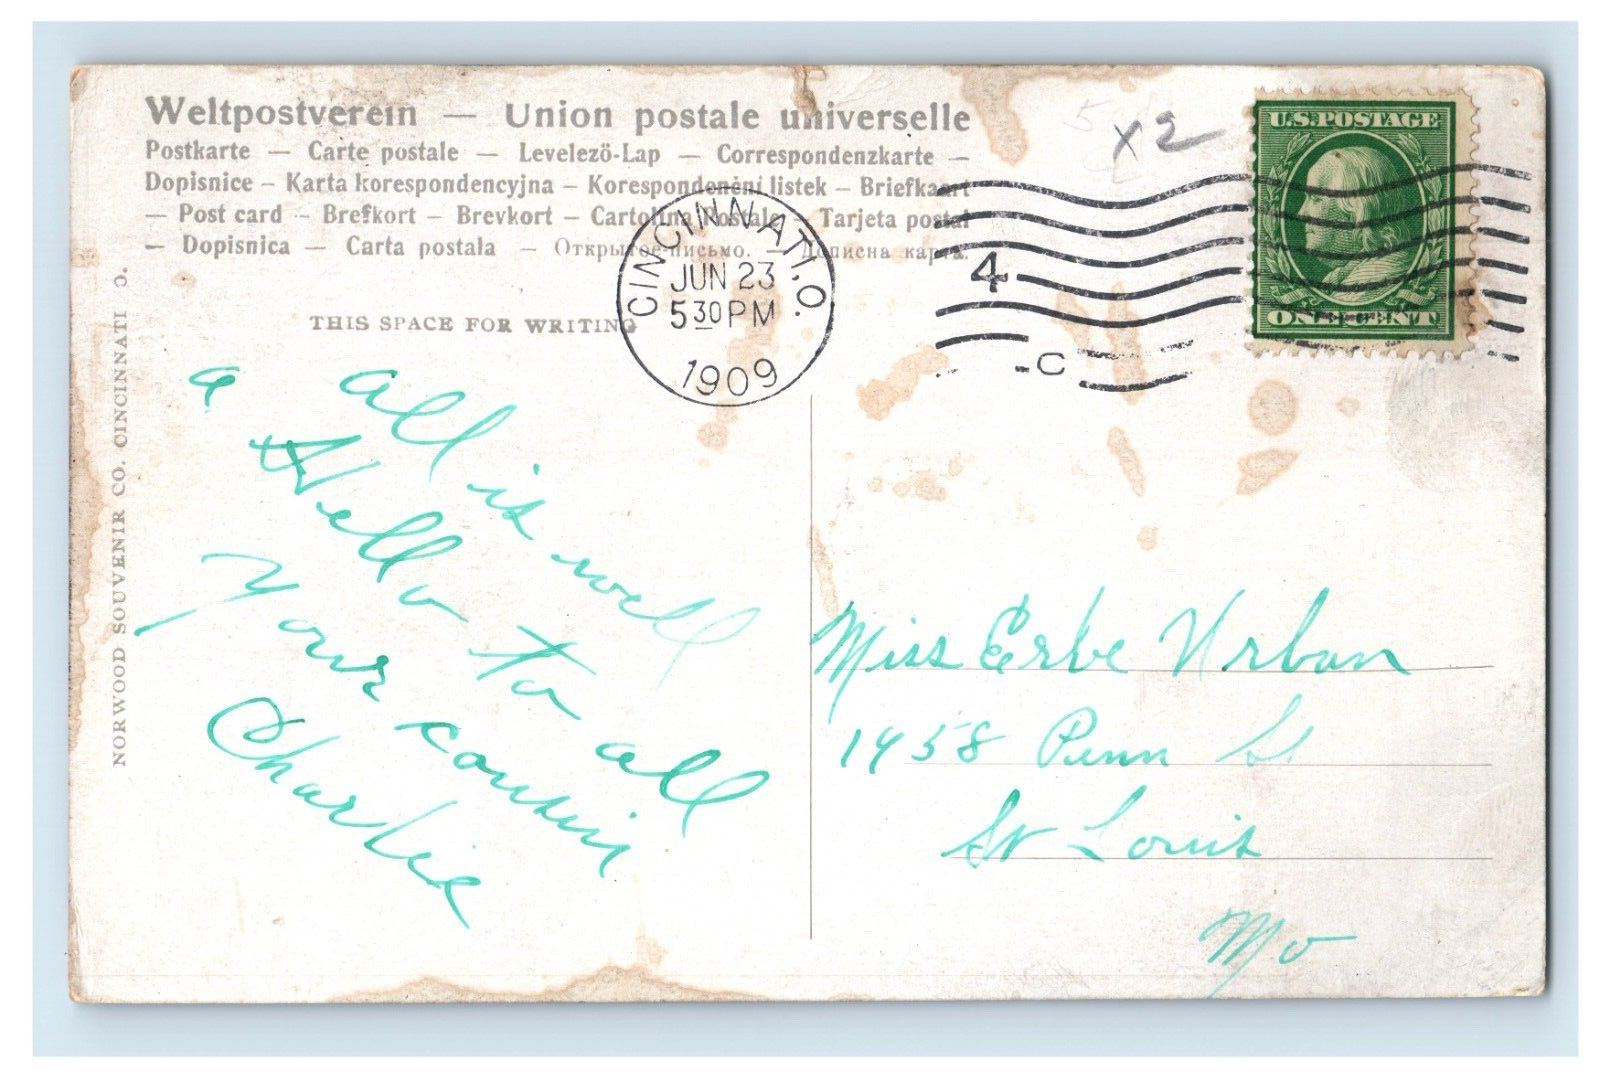 Weltpostverein — Union postale universelle
Postkarte — Carte postale — Levelezö-Lap — Correspondenzkarte —
Dopisnice – Karta korespondencyjna – Korespondenční listek – Briefkaart
— Post card – Brefkort – Brevkort – Cartolina Postale – Tarjeta postal
— Dopisnica — Carta postala — Открытое письмо. — Дописна карта.
X2
U.S. POSTAGE
ONE CENT
CINCINNATI, O.
JUN 23
5 30 PM
1909
4
C
THIS SPACE FOR WRITING
NORWOOD SOUVENIR CO. CINCINNATI O.
a all is well
Hello to all
Your cousin
Charlie
Miss Erbe Urban
1958 Penn St
St Louis
Mo